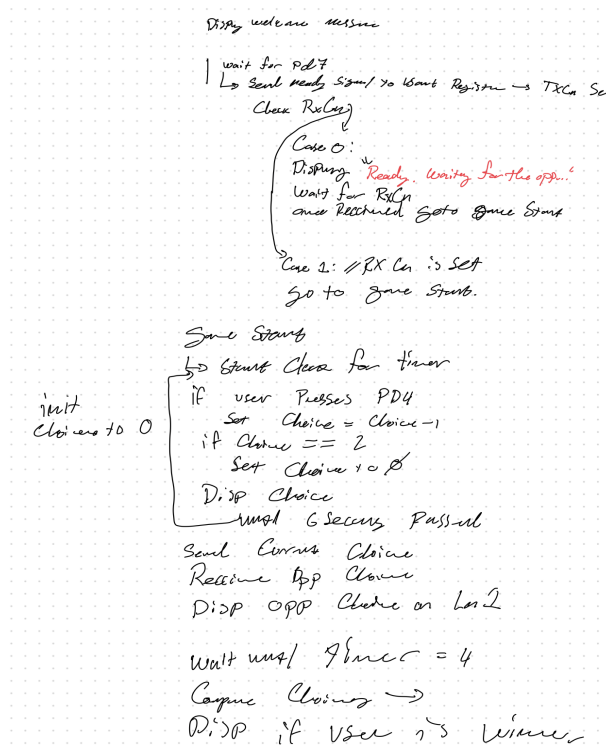 Display welcome message
wait for Pd7
↳ Send ready Signal to Usart Register → TXCn Se
Check RxCn
Case 0:
Display "Ready. Waiting for the opp.."
wait for RxCn
once Received goto game Start
Case 1: // RX Cn is set
go to game Start.
Game Start
↳ Start Clock for timer
if user Presses PD4
Set Choice = Choice -1
if Choice == 2
Set Choice to 0
Disp Choice
until 6 Seconds Passed
init
Choice to 0
Send Current Choice
Receive Opp Choice
Disp opp Choice on Ln 2
Wait until timer = 4
Compare Choices →
Disp if User is winner